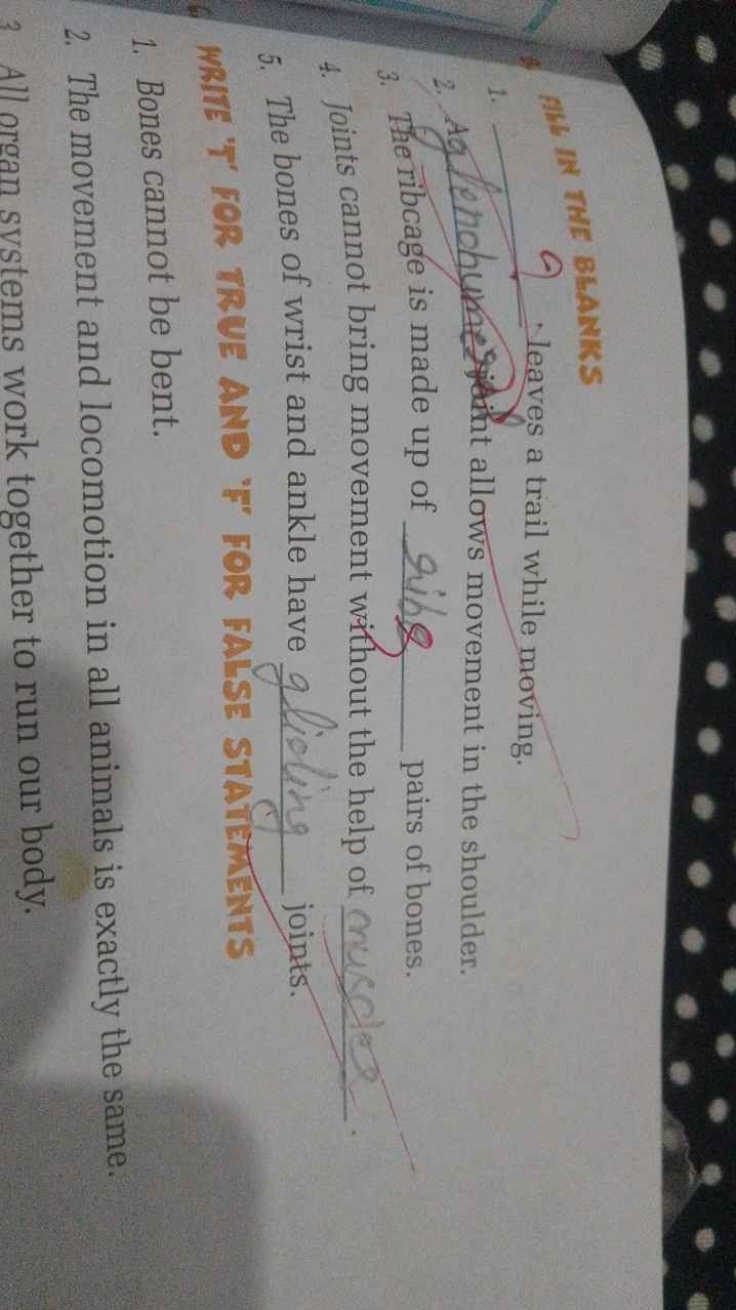 FILL IN THE BLANKS
1. ________ leaves a trail while moving.
2. A joint allows movement in the shoulder.
3. The ribcage is made up of ribs pairs of bones.
4. Joints cannot bring movement without the help of muscles.
5. The bones of wrist and ankle have gliding joints.
WRITE 'T' FOR TRUE AND 'F' FOR FALSE STATEMENTS
1. Bones cannot be bent.
2. The movement and locomotion in all animals is exactly the same.
3. All organ systems work together to run our body.